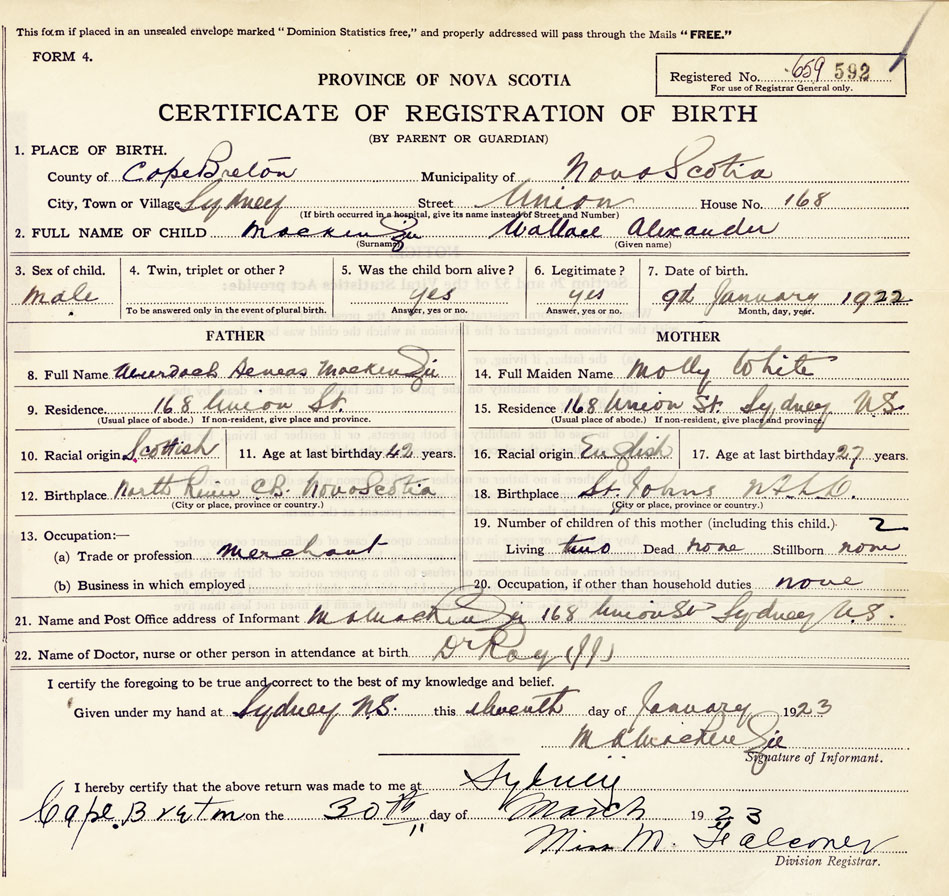 This form if placed in an unsealed envelope marked "Dominion Statistics free," and properly addressed will pass through the Mails "FREE."
FORM 4.
Registered No. 659 592
For use of Registrar General only.
PROVINCE OF NOVA SCOTIA
CERTIFICATE OF REGISTRATION OF BIRTH
(BY PARENT OR GUARDIAN)
1. PLACE OF BIRTH.
County of Cape Breton Municipality of Nova Scotia
City, Town or Village Sydney Street Union House No. 168
(If birth occurred in a hospital, give its name instead of Street and Number)
2. FULL NAME OF CHILD MacKenzie Wallace Alexander
(Surname) (Given name)
3. Sex of child. 4. Twin, triplet or other? 5. Was the child born alive? 6. Legitimate? 7. Date of birth.
Male yes yes 9th January 1922
To be answered only in the event of plural birth. Answer, yes or no. Answer, yes or no. Month, day, year.
FATHER
8. Full Name Murdoch Aeneas MacKenzie
9. Residence. 168 Union St.
(Usual place of abode.) If non-resident, give place and province.
10. Racial origin Scottish 11. Age at last birthday 42 years.
12. Birthplace North River C.B. Nova Scotia
(City or place, province or country.)
13. Occupation:—
(a) Trade or profession merchant
(b) Business in which employed
MOTHER
14. Full Maiden Name Molly White
15. Residence 168 Union St. Sydney N.S.
(Usual place of abode.) If non-resident, give place and province.
16. Racial origin English 17. Age at last birthday 27 years.
18. Birthplace St. Johns NFLD.
(City or place, province or country.)
19. Number of children of this mother (including this child.) 2
Living two Dead none Stillborn none
20. Occupation, if other than household duties none
21. Name and Post Office address of Informant M A MacKenzie 168 Union St Sydney N.S.
22. Name of Doctor, nurse or other person in attendance at birth Dr Roy (JJ)
I certify the foregoing to be true and correct to the best of my knowledge and belief.
Given under my hand at Sydney N.S. this eleventh day of January 1923
M A MacKenzie
Signature of Informant.
I hereby certify that the above return was made to me at Sydney
Cape Breton on the 30th day of March 1923
Miss M. Falconer
Division Registrar.